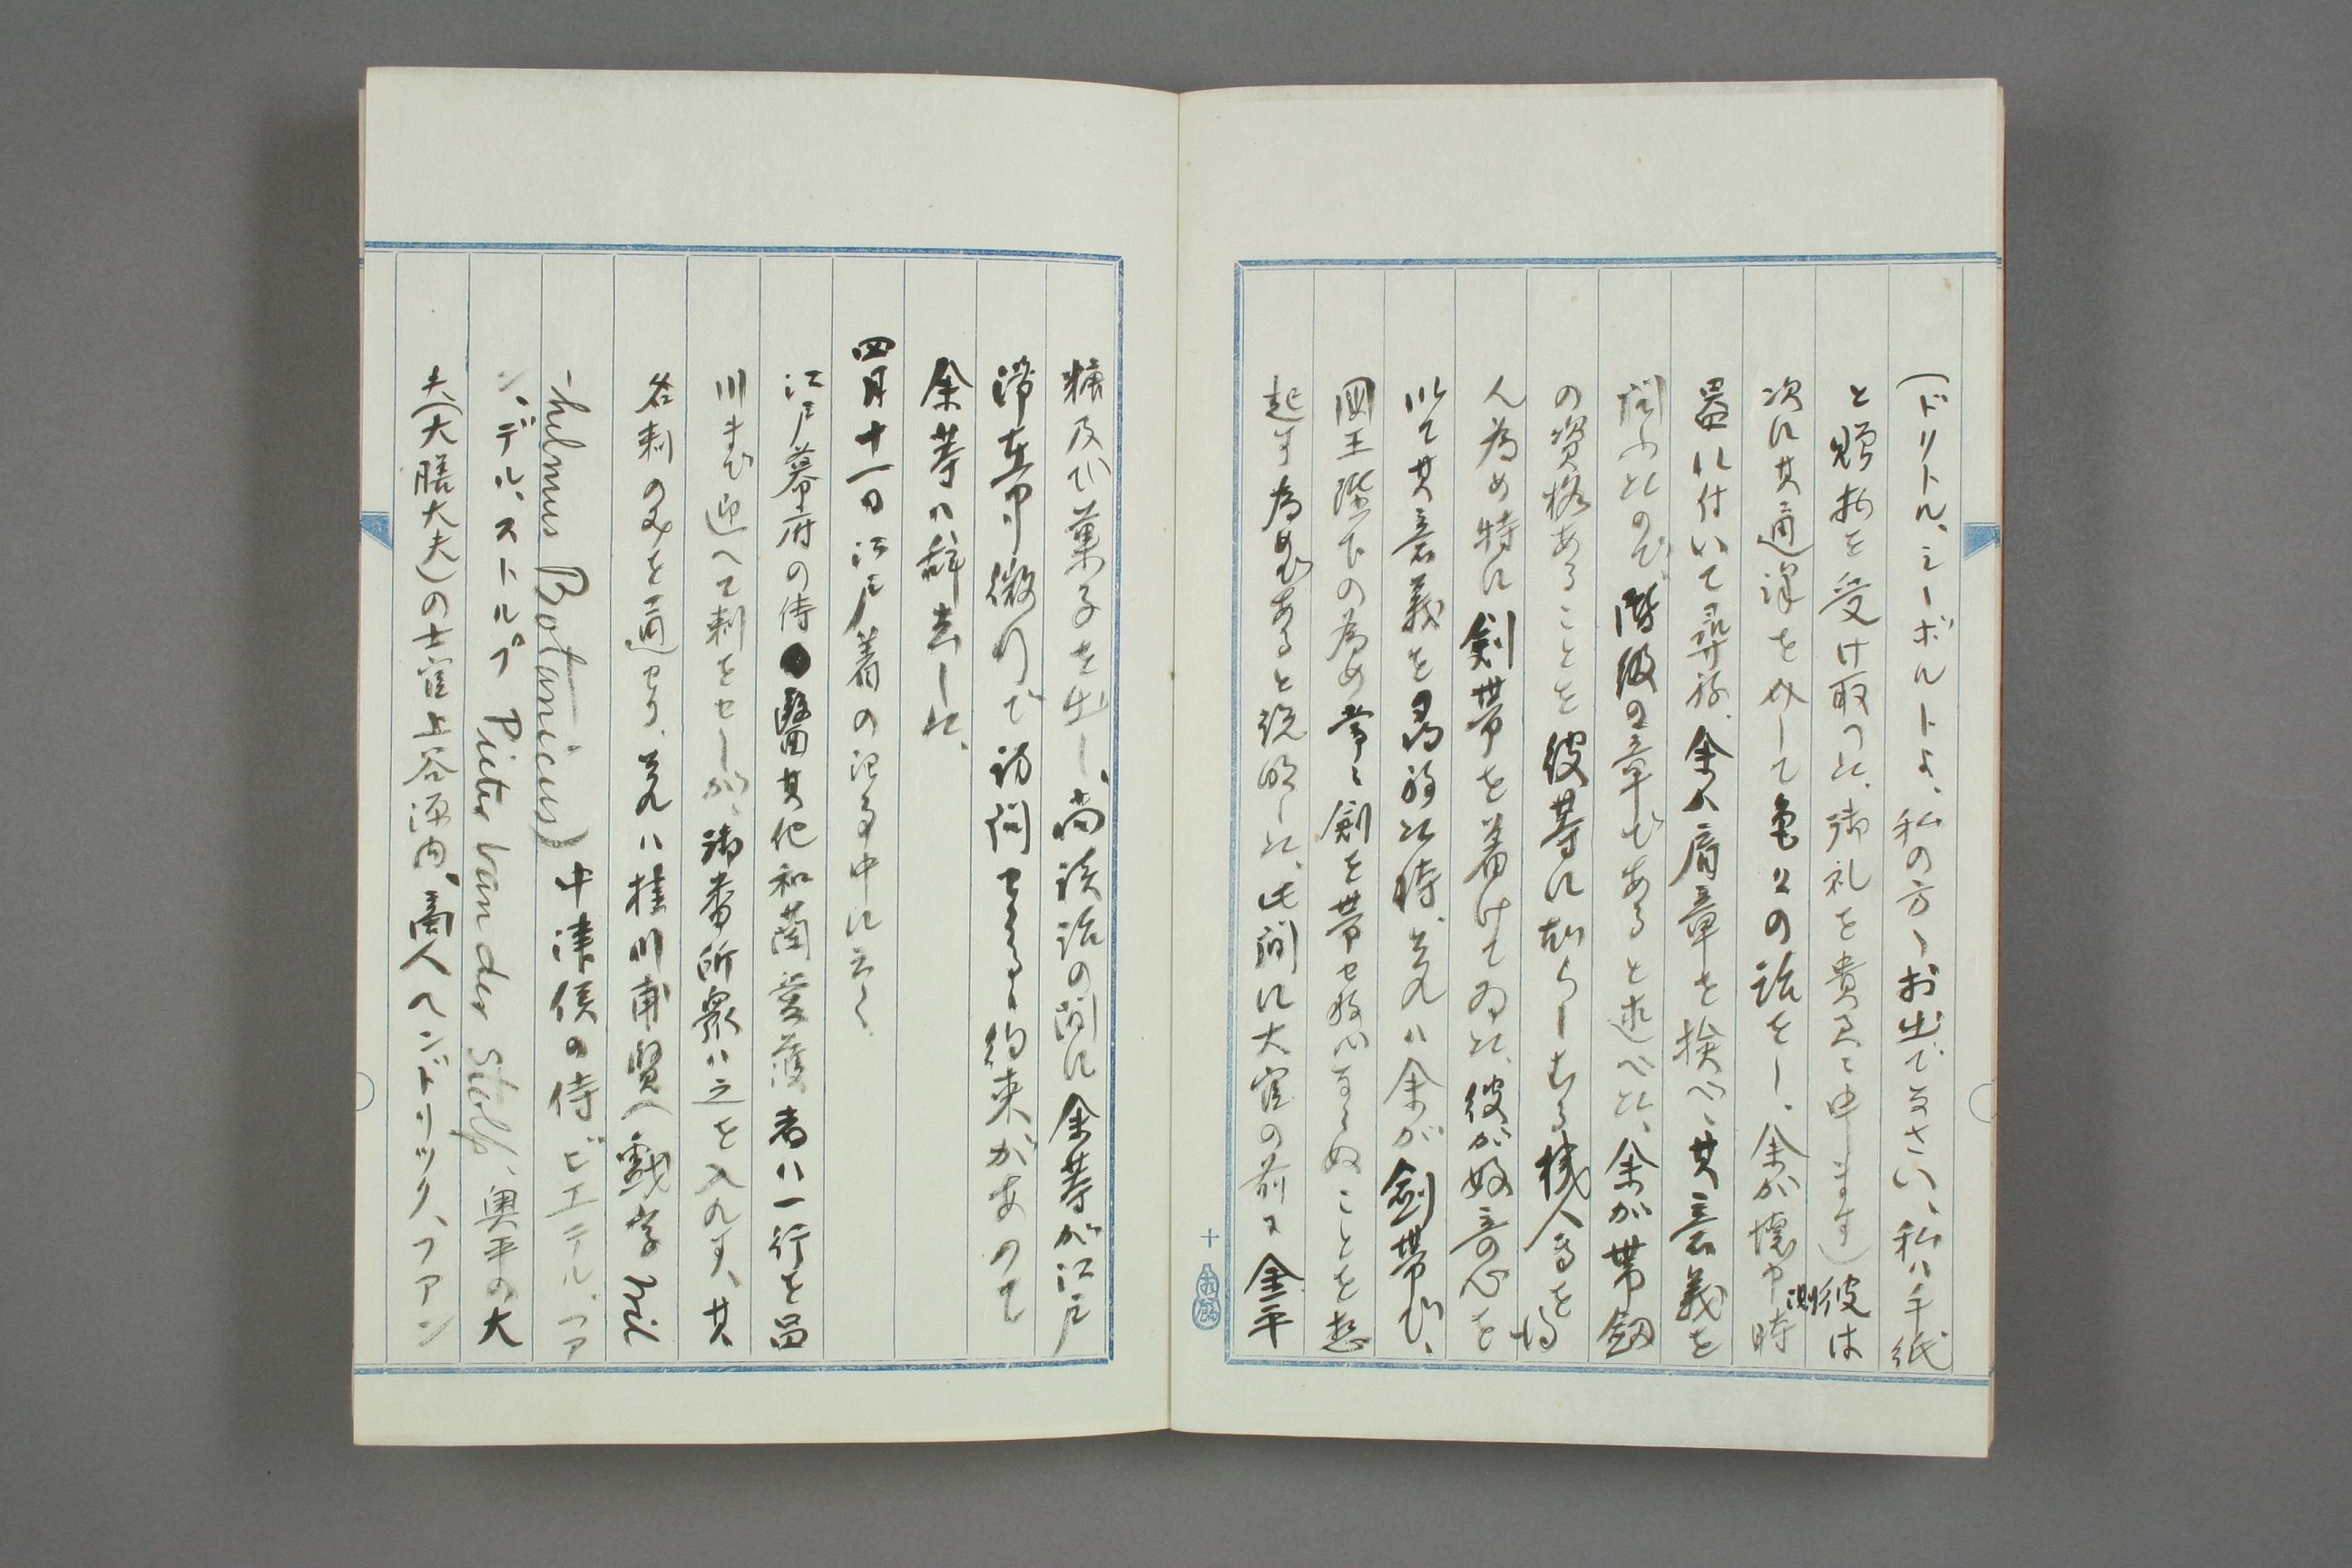 (ドリトル、シーボルトよ、私の方へお出でなさい、私ハ手紙
と贈物を受け取つた、御礼を貴君に申します)彼は
次に其通譯を介して色々の話をし、余が懐中時
測
器に付いて尋ね、余ハ肩章を撿べ、其意義を
問ふたので、階級の章であると述べた、余が帶劔
の資格あることを彼等に知らしむる機会を得
ん為め特に劍帶を着けてゐた、彼が好意心を
以て其意義を尋ねた時、是ハ余が劍帶で、
國王陛下の為め常に劍を帶せねバならぬことを想
起す為めであると説明した、此間に大官の前に金平
糖及び菓子を出し、尚談話の間に余等が江戸
滞在中微行で訪問せらるゝ約束があつて
余等ハ辞去した、
四月十一日江戸着の記事中に云く
江戸幕府の侍醫其他和蘭愛護者ハ一行を品
川まで迎へて刺をせしが、御番所衆ハ之を入れず、其
名刺のみを通せり、是ハ桂川甫賢(戲字Wil
-helmus Botanicus)中津侯の侍ピエテル、ファ
ン、デル、ストルプ Pieter van der Stolp、奥平の大
夫(大膳大夫)の士官上谷源内、商人ヘンドリック、ファン
十